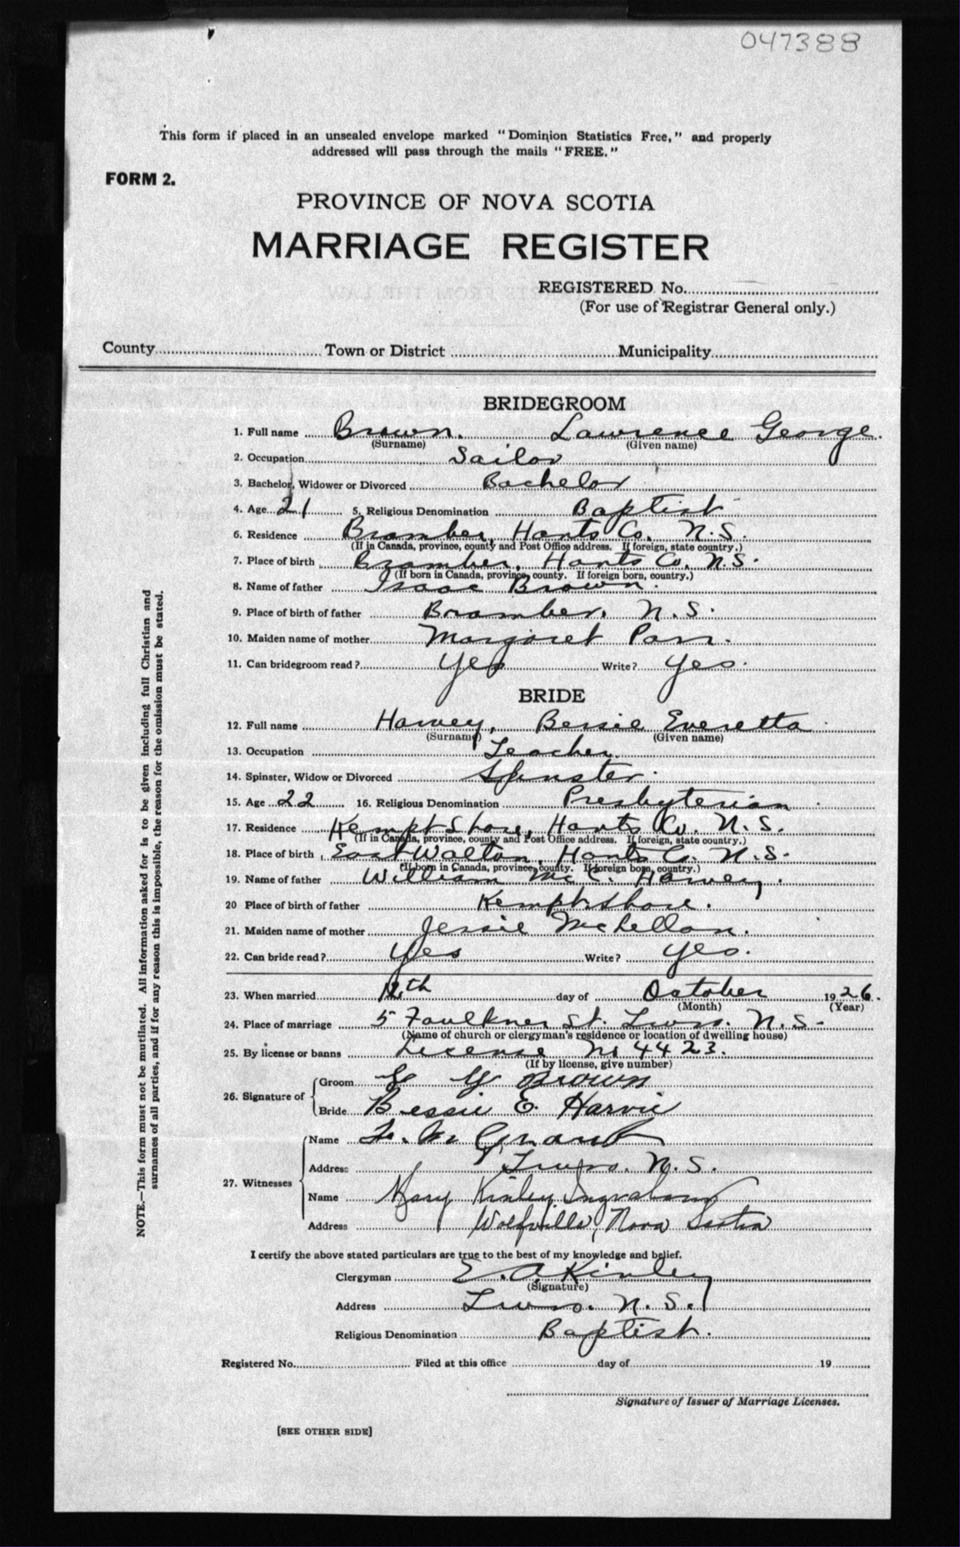 047388
This form if placed in an unsealed envelope marked "Dominion Statistics Free," and properly
addressed will pass through the mails "FREE."
FORM 2.
PROVINCE OF NOVA SCOTIA
MARRIAGE REGISTER
REGISTERED No.
(For use of Registrar General only.)
County Town or District Municipality
BRIDEGROOM
1. Full name Brown. Lawrence George.
(Surname) (Given name)
2. Occupation Sailor
3. Bachelor, Widower or Divorced Bachelor
4. Age 21 5. Religious Denomination Baptist
6. Residence Bramber, Hants Co. N.S.
(If in Canada, province, county and Post Office address. If foreign, state country.)
7. Place of birth Bramber, Hants Co. N.S.
(If born in Canada, province, county. If foreign born, country.)
8. Name of father Isaac Brown.
9. Place of birth of father Bramber. N.S.
10. Maiden name of mother Margaret Parr.
11. Can bridegroom read? Yes Write? Yes.
BRIDE
12. Full name Harvey, Bessie Everetta
(Surname) (Given name)
13. Occupation Teacher
14. Spinster, Widow or Divorced Spinster.
15. Age 22 16. Religious Denomination Presbyterian
17. Residence Kempt Shore, Hants Co. N.S.
(If in Canada, province, county and Post Office address. If foreign, state country.)
18. Place of birth East Walton, Hants Co. N.S.
(If born in Canada, province, county. If foreign born, country.)
19. Name of father William Mc C. Harvey.
20 Place of birth of father Kempt Shore.
21. Maiden name of mother Jessie McLellan.
22. Can bride read? Yes Write? Yes.
23. When married 12th day of October 1926.
(Month) (Year)
24. Place of marriage 5 Faulkner St. Truro. N.S.
(Name of church or clergyman's residence or location of dwelling house)
25. By license or banns License No 4423.
(If by license, give number)
26. Signature of
Groom Brown
Bride Bessie E. Harvie
27. Witnesses
Name Grant
Address Truro. N.S.
Name Mary Kinley Ingraham
Address Wolfville, Nova Scotia
I certify the above stated particulars are true to the best of my knowledge and belief.
Clergyman E. A Kinley
(Signature)
Address Truro. N.S.
Religious Denomination Baptist.
Registered No. Filed at this office day of 19
Signature of Issuer of Marriage Licenses.
[SEE OTHER SIDE]
NOTE.—This form must not be mutilated. All information asked for is to be given including full Christian and
surnames of all parties, and if for any reason this is impossible, the reason for the omission must be stated.